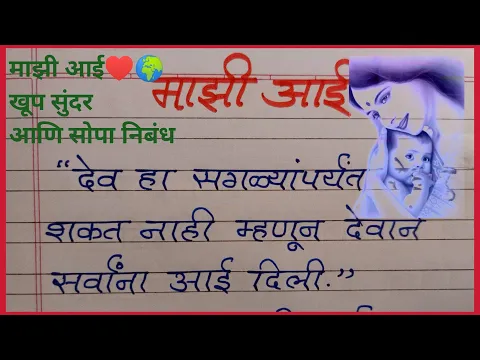 माझी आई❤️🌍
खूप सुंदर
आणि सोपा निबंध
माझी आई
“देव हा सगळ्यांपर्यंत
शकत नाही म्हणून देवान
सर्वांना आई दिली.”